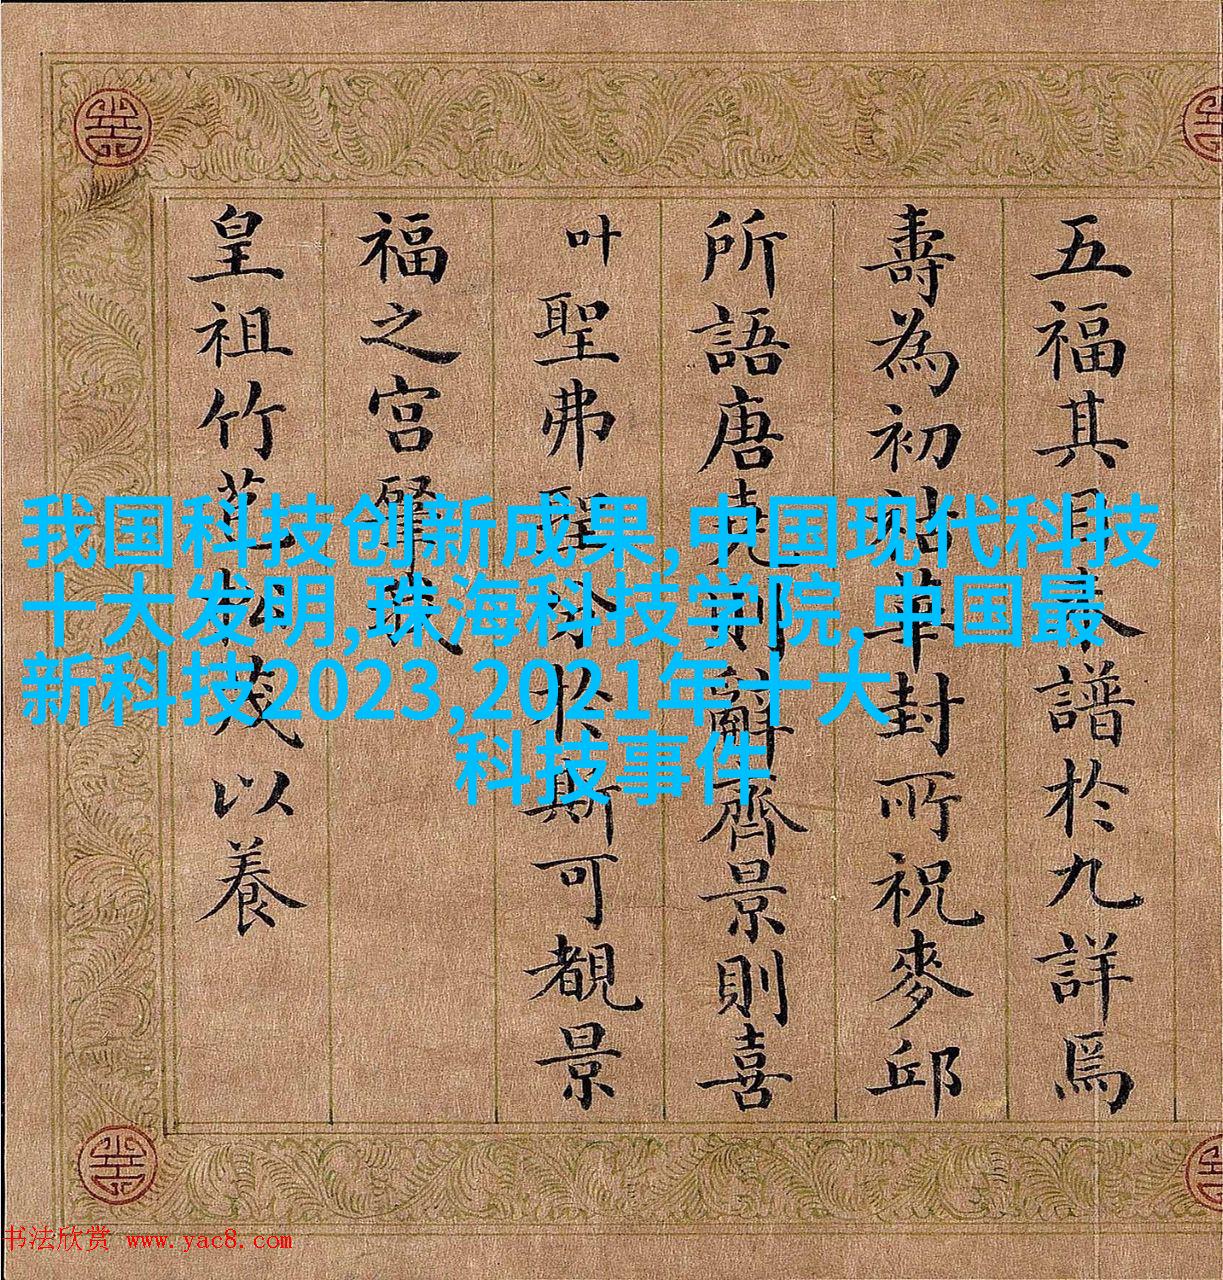 五福其目□譜於九詳焉
壽為初祜華封所祝麥邱
所語唐堯則辭齊景則喜
叶聖弗聖今於斯可覩景
福之宮肇我
皇祖竹苞松茂以養
我国科技创新成果,中国现代科技
十大发明,珠海科技学院,中国最
新科技2023,2021年十大
科技事件
书法欣赏 www.yac8.com